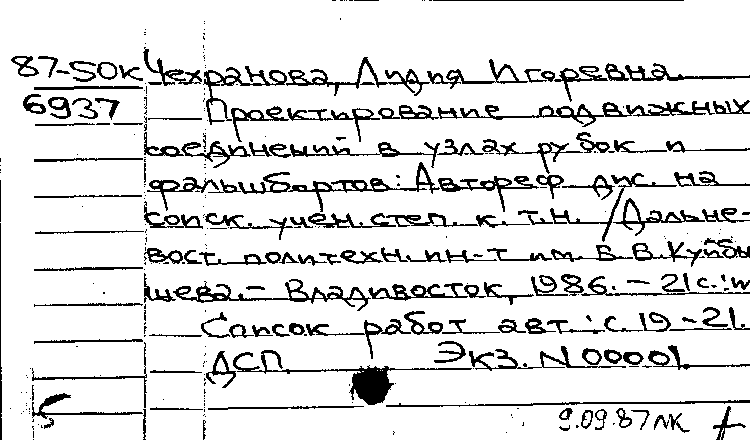 87-50к Чехранова, Лидия Игоревна.
6937 Проектирование подвижных
соединений в узлах рубок и
фальшбортов: Автореф. дис. на
соиск. учен. степ. к. т. н. / Дальне-
вост. политехн. ин-т им. В. В. Куйбы
шева. – Владивосток, 1986. – 21 с.: и
Список работ авт.: с. 19-21.
ДСП. Экз. N 00001.
5
9.09.87 лк